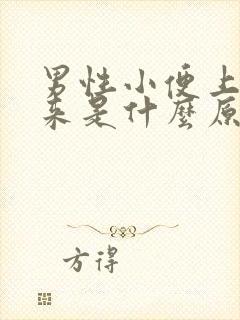 男性小便上
来是什麼原
方得